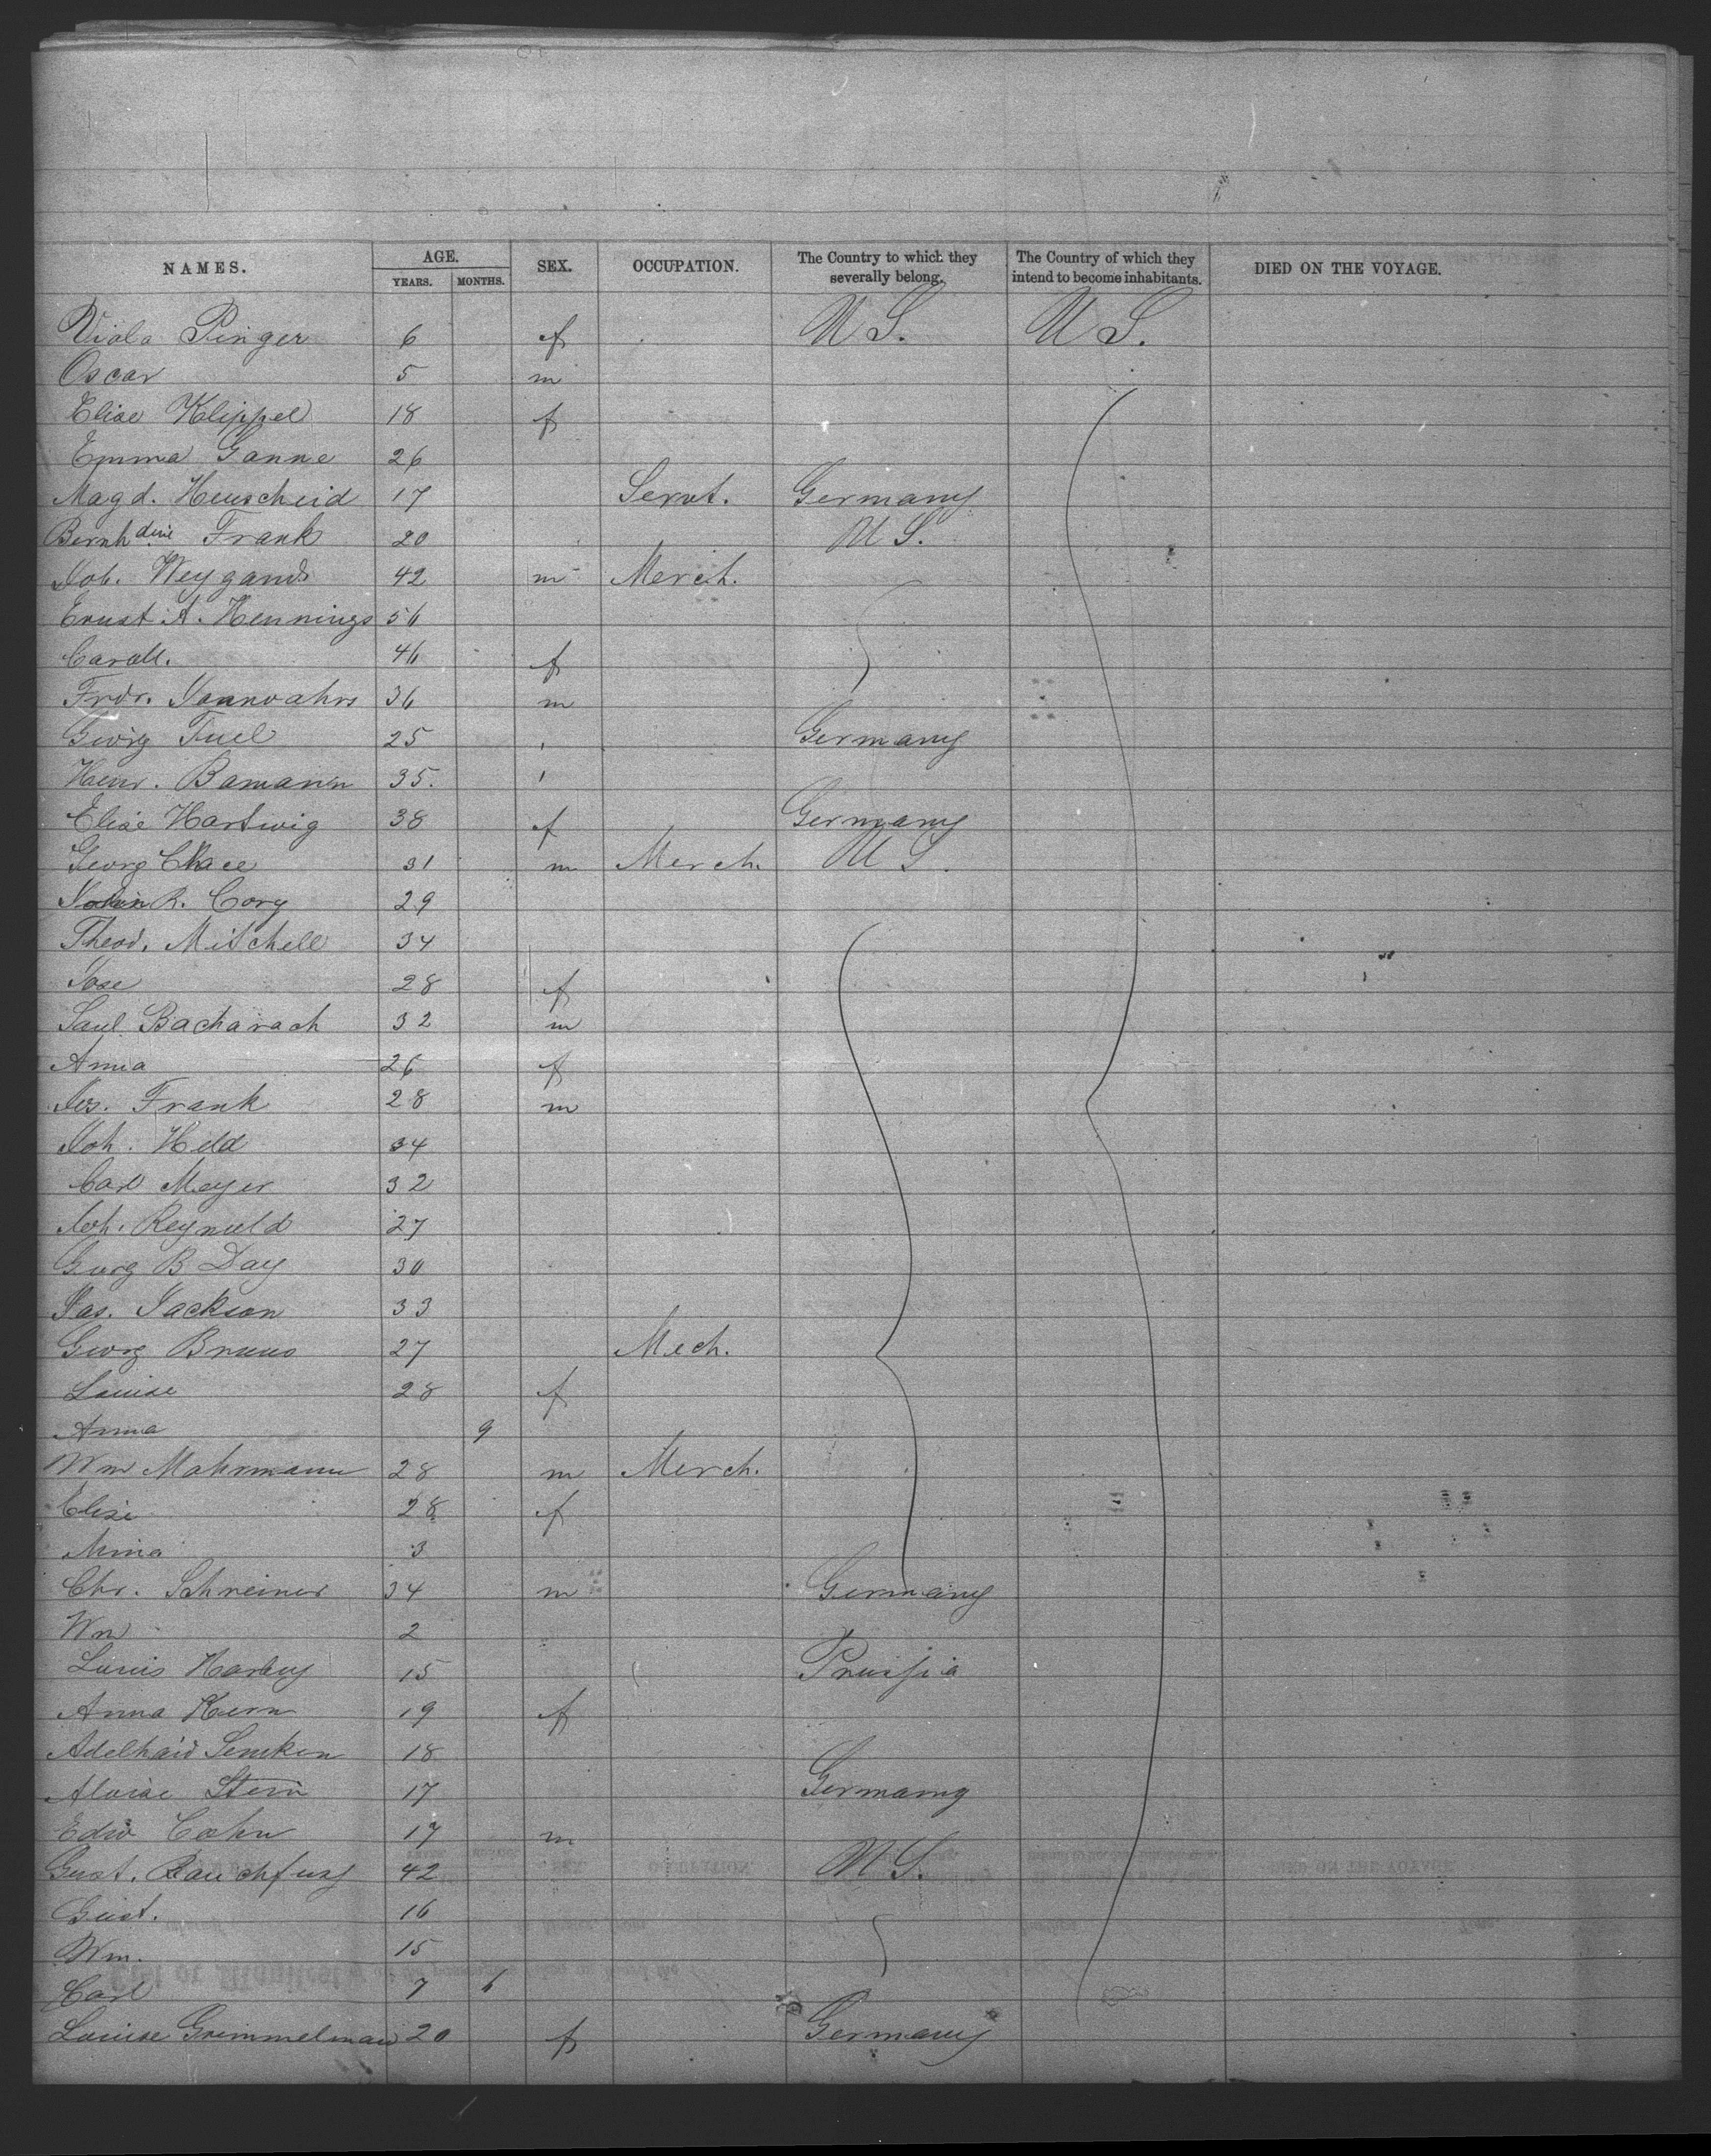 NAMES. AGE. SEX. OCCUPATION. The Country to which they severally belong. The Country of which they intend to become inhabitants. DIED ON THE VOYAGE.
YEARS. MONTHS.
Viola Pinger 6 f U S. U S.
Oscar 5 m
Elise Klippel 18 f
Emma Ganne 26
Magd. Heuscheid 17 Servt. Germany
Bernhdine Frank 20 U S.
Joh. Weygand 42 m Merch.
Ernst A. Hennings 56
Caroll. 46 f
Frdr. 36 m
Georg Tuel 25 Germany
Henr. Bamann 35.
Elise Hartwig 38 f Germany
Georg Chace 31 m Merch. U S.
John R. Cory 29
Theod. Mitchell 34
Jose 28 f
Saul Bacharach 32 m
Anna 26 f
Jos. Frank 28 m
Joh. Held 34
Carl Meyer 32
Joh. Reynuld 27
Georg B Day 30
Jas. Jackson 33
Georg Bruns 27 Mech.
Louise 28 f
Anna 9
Wm Mahrmann 28 m Merch.
Elise 28 f
Mina 3
Chr. Schreiner 34 m Germany
Wm 2
Louis 15 Prussia
Anna Kern 19 f
Adelhaid Semken 18
Aloise Stern 17 Germany
Edw Cohn 17 m
Gust. Rauchfuss 42 U S.
Gust. 16
Wm. 15
Carl 7 6
Louise Grimmelman 20 f Germany